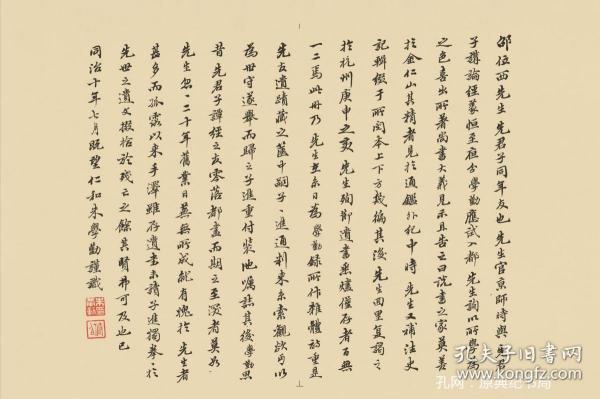 邵位西先生先君子同年友也先生官京師時與先君
子講論經義恒至夜分學勤應試入都先生詢以所學爲
之色喜出所著尚書大義見示且告之曰說書之家莫善
於金仁山其精者見於通鑑外紀中時先生又補法史
記輯綴于所閱本上下方幾徧其後先生回里复謁之
於杭州庚申之變先生殉節遺書悉燼僅存者百無
一二焉此冊乃先生在京日爲學勤錄所作雜體詩重是
先友遺蹟藏之篋中嗣子進通判來京索觀欲予以
爲世守遂舉而歸之子進重付裝池屬誌其後學勤思
昔先君子譚經之友零落都盡而期之至深者莫如
先生忽忽二十年舊業日蕪無所成就有愧於先生者
甚多而孤露以來手澤雖存遺書未請子進獨拳拳於
先世之遺文掇拾於殘亡之餘其賢弗可及也已
同治十年七月既望仁和朱學勤謹識
孔网：原典纪书局
孔夫子旧书网